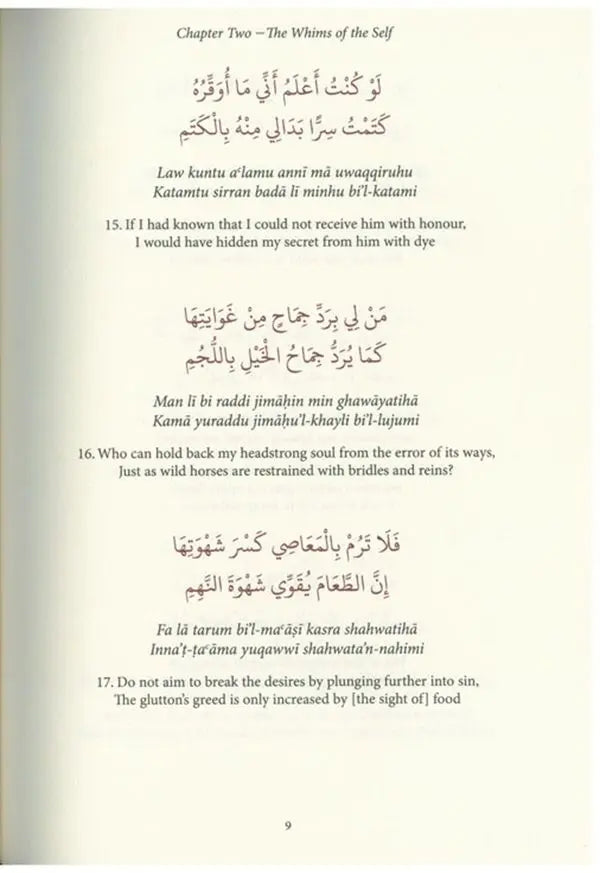 Chapter Two – The Whims of the Self
لَوْ كُنْتُ أَعْلَمُ أَنِّي مَا أُوَقِّرُهُ
كَتَمْتُ سِرًّا بَدَالِي مِنْهُ بِالْكَتَمِ
Law kuntu aʿlamu annī mā uwaqqiruhu
Katamtu sirran badā lī minhu bi’l-katami
15. If I had known that I could not receive him with honour,
I would have hidden my secret from him with dye
مَنْ لِي بِرَدِّ جِمَاحٍ مِنْ غَوَايَتِهَا
كَمَا يُرَدُّ جِمَاحُ الْخَيْلِ بِاللُّجُمِ
Man lī bi raddi jimāḥin min ghawāyatihā
Kamā yuraddu jimāḥu’l-khayli bi’l-lujumi
16. Who can hold back my headstrong soul from the error of its ways,
Just as wild horses are restrained with bridles and reins?
فَلَا تَرُمْ بِالْمَعَاصِي كَسْرَ شَهْوَتِهَا
إِنَّ الطَّعَامَ يُقَوِّي شَهْوَةَ النَّهِمِ
Fa lā tarum bi’l-maʿāṣī kasra shahwatihā
Inna’ṭ-ṭaʿāma yuqawwī shahwata’n-nahimi
17. Do not aim to break the desires by plunging further into sin,
The glutton’s greed is only increased by [the sight of] food
9